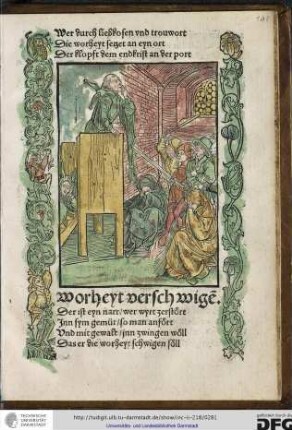 Wer durch liebkosen vnd trouwort
Die worheyt setzet an eyn ort
Der klopft dem endkrist an der port
worheyt verschwigē.
Der ist eyn narr / wer wyrt zerstört
Inn sym gemüt / so man anfört
Vnd mit gewalt / jnn zwingen wöll
Das er die worheyt schwigen söll
TECHNISCHE
UNIVERSITÄT
DARMSTADT
http://tudigit.ulb.tu-darmstadt.de/show/inc-ii-218/0281
Universitäts- und Landesbibliothek Darmstadt
gefördert durch die
DFG